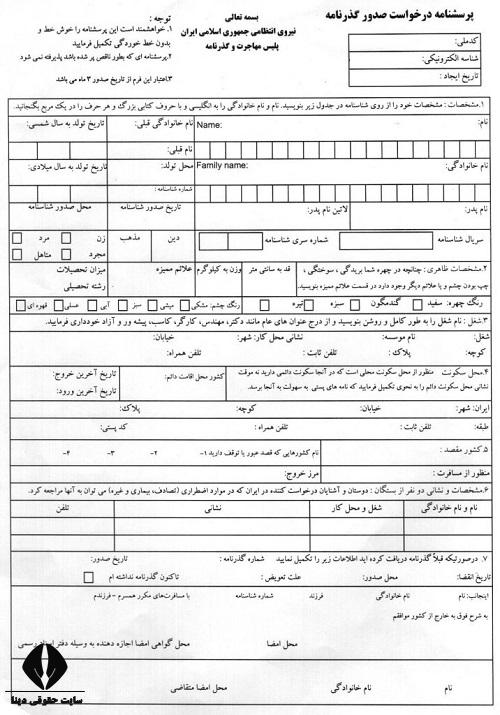 پرسشنامه درخواست صدور گذرنامه
کدملی:
شناسه الکترونیکی:
تاریخ ایجاد :
بسمه تعالی
نیروی انتظامی جمهوری اسلامی ایران
پلیس مهاجرت و گذرنامه
توجه :
۱. خواهشمند است این پرسشنامه را خوش خط و
بدون خط خوردگی تکمیل فرمایید
۲.پرسشنامه ای که بطور ناقص پر شده باشد پذیرفته نمی شود
۳.اعتبار این فرم از تاریخ صدور ۳ ماه می باشد
۱.مشخصات : مشخصات خود را از روی شناسنامه در جدول زیر بنویسید. نام و نام خانوادگی را به انگلیسی و با حروف کتابی بزرگ و هر حرف را در یک مربع بگنجانید.
نام: Name: نام خانوادگی قبلی: تاریخ تولد به سال شمسی:
نام قبلی:
نام خانوادگی: Family name: محل تولد: تاریخ تولد به سال میلادی:
شماره شناسنامه :
نام پدر: لاتین نام پدر: تاریخ صدور شناسنامه محل صدور شناسنامه
سریال شناسنامه شماره سری شناسنامه دین مذهب زن مرد
مجرد متاهل
۲.مشخصات ظاهری : چنانچه در چهره شما بریدگی ، سوختگی ،
چپ بودن چشم و یا علائم دیگر وجود دارد در قسمت علائم ممیزه بنویسید.
قد به سانتی متر وزن به کیلوگرم علائم ممیزه میزان تحصیلات
رشته تحصیلی
رنگ چهره: سفید گندمگون سبزه تیره رنگ چشم: مشکی میشی سبز آبی عسلی قهوه ای
۳.شغل : نام شغل را به طور کامل و روشن بنویسید و از درج عنوان های عام مانند دکتر، مهندس، کارگر، کاسب، پیشه ور و آزاد خودداری فرمایید.
شغل: نام موسسه: نشانی محل کار: شهر: خیابان:
کوچه: پلاک : تلفن ثابت : تلفن همراه:
۴.محل سکونت منظور از محل سکونت محلی است که در آنجا سکونت دائمی دارید نه موقت
نشانی محل سکونت دائم را به نحوی تکمیل فرمایید که نامه های پستی به سهولت به آنجا برسد.
کشور محل اقامت دائم: تاریخ آخرین خروج:
تاریخ آخرین ورود:
ایران: شهر: خیابان: کوچه: پلاک:
طبقه: تلفن ثابت : تلفن همراه : کد پستی:
۵.کشور مقصد : نام کشورهایی که قصد عبور یا توقف دارید ۱- ۲- ۳- ۴-
منظور از مسافرت : مرز خروج:
۶.مشخصات و نشانی دو نفر از بستگان : دوستان و آشنایان درخواست کننده در ایران که در موارد اضطراری (تصادف، بیماری و غیره) می توان به آنها مراجعه کرد.
نام و نام خانوادگی شغل و محل کار نشانی تلفن
۷. درصورتیکه قبلاً گذرنامه دریافت کرده اید اطلاعات زیر را تکمیل نمایید شماره گذرنامه : تاریخ صدور:
تاریخ انقضا: محل صدور: علت تعویض : تاکنون گذرنامه نداشته ام
اینجانب: نام نام خانوادگی فرزند شماره شناسنامه با مسافرت‌های مکرر همسرم - فرزندم
به شرح فوق به خارج از کشور موافقم
محل امضا محل گواهی امضا اجازه دهنده به وسیله دفتر اسناد رسمی
نام نام خانوادگی محل امضا متقاضی
سایت حقوقی دینا